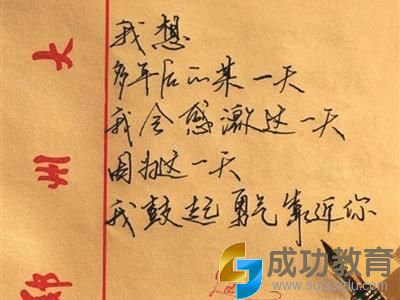 我想
多年后的某一天
我会感激这一天
因为这一天
我鼓起勇气靠近你
大
州
成功教育